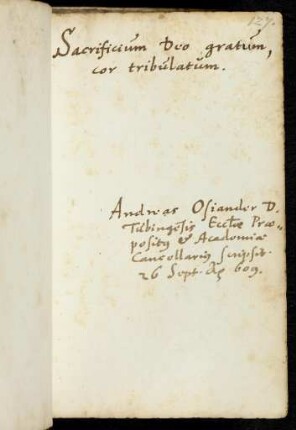 127.
Sacrificium Deo gratum,
cor tribulatum.
Andreas Osiander D.
Tubingesis Eccłæ Præ=
positꝰ & Academiæ
Cancellariꝰ scripsit.
26 Sept. Aº 609.